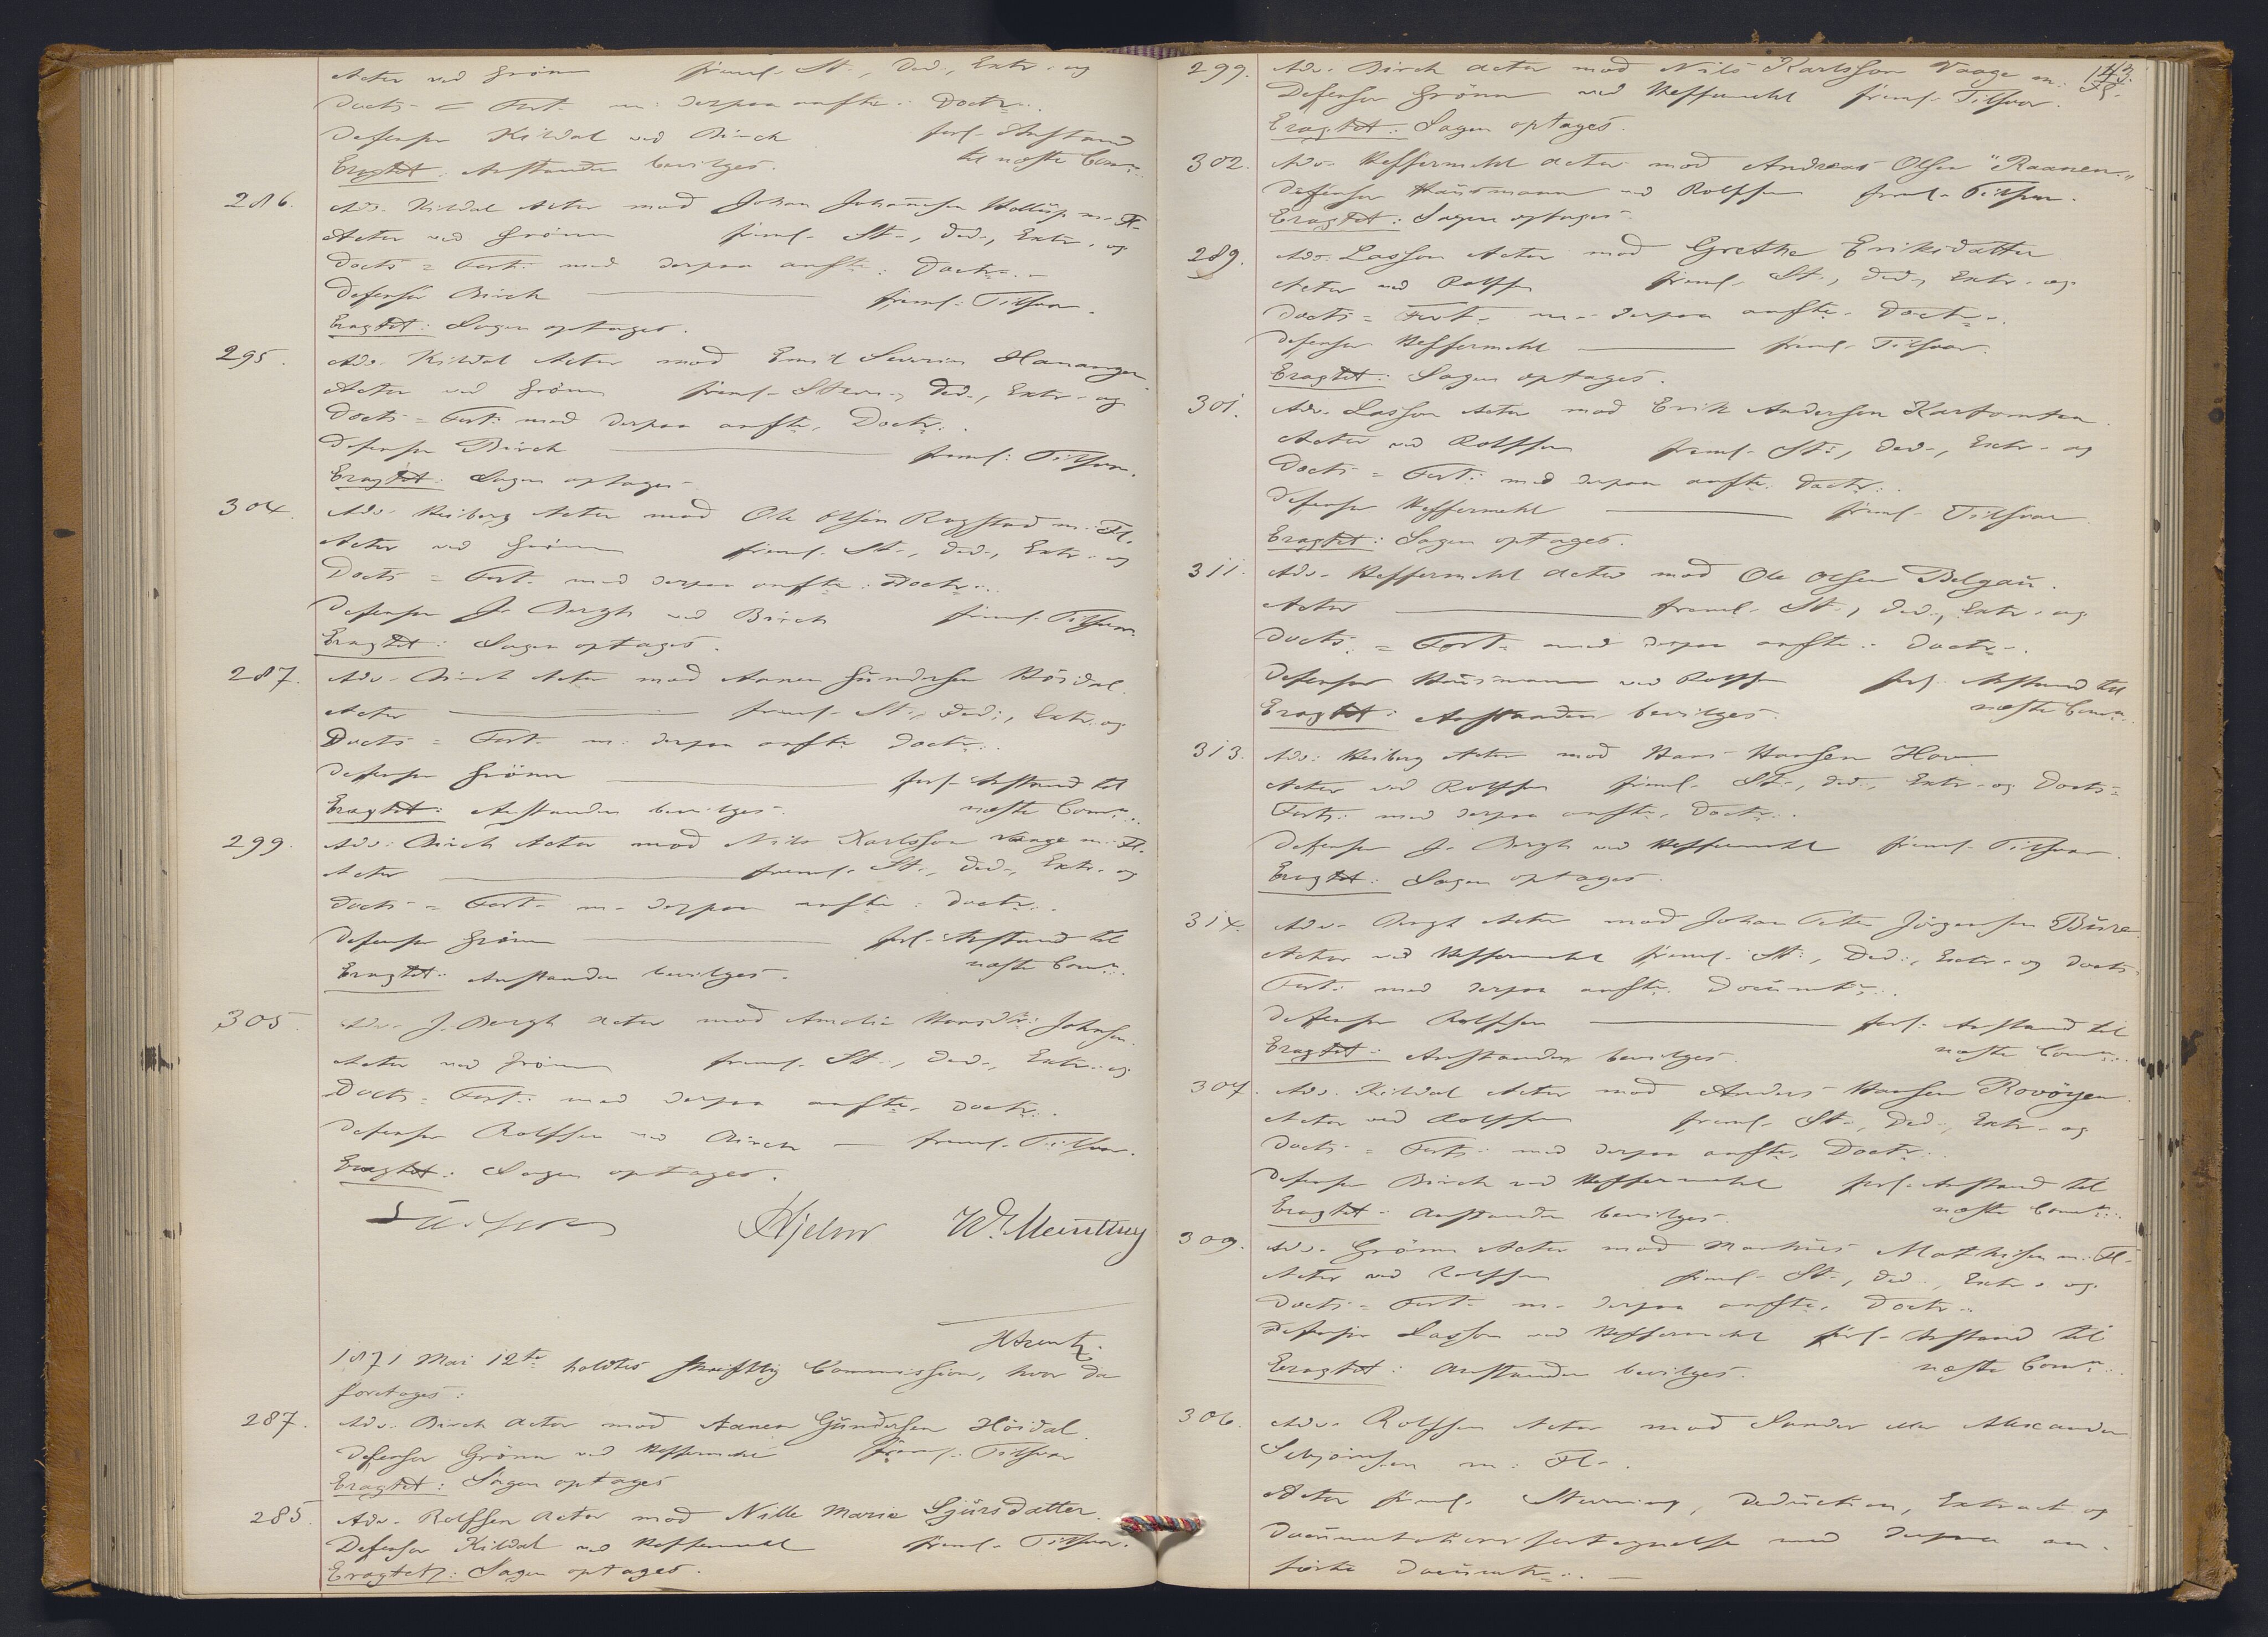 Actor ved Grönn freml. St., Ded., Extr. og
Docts = Fort. m. derpaa anfte. Doctr.
Defensor Kildal ved Birch forl. Anstand
Eragtet: Anstanden bevilges. til næste Comn.
286. Adv. Kildal Actor mod Johan Johannesen m. Fl.
Actor ved Grönn freml. St., Ded., Extr. og
Docts = Fort. med derpaa anfte. Doctr.
Defensor Birch — freml. Tilsvar.
Eragtet: Sagen optages.
295. Adv. Kildal Actor mod Emil Severin Hananger.
Actor ved Grönn freml. Stevn., Ded., Extr. og
Docts = Fort. med derpaa anfte. Doctr.
Defensor Birch — freml. Tilsvar.
Eragtet: Sagen optages.
304. Adv. Heiberg Actor mod Ole Olsen Rogstad m. Fl.
Actor ved Grönn freml. St., Ded., Extr. og
Docts = Fort. med derpaa anfte. Doctr.
Defensor J. Bergh ved Birch freml. Tilsvar.
Eragtet: Sagen optages.
287. Adv. Birch Actor mod Aanen Gundersen Höidal.
Actor — freml. St., Ded., Extr. og
Docts = Fort. m. derpaa anfte Doctr.
Defensor Grönn — forl. Anstand til
Eragtet: Anstanden bevilges. næste Comn.
299. Adv. Birch Actor mod Nils Karlsson Vaage m. Fl.
Actor — freml. St., Ded., Extr. og
Docts = Fort. m. derpaa anfte. Doctr.
Defensor Grönn — forl. Anstand til
Eragtet: Anstanden bevilges. næste Comn.
305. Adv. J. Bergh Actor mod Amalia Hansdtr. Johnsen.
Actor ved Grönn freml. St., Ded., Extr. og
Docts = Fort. med derpaa anfte. Doctr.
Defensor Rolfsen ved Birch — freml. Tilsvar.
Eragtet: Sagen optages.
Hjelm
1871 Mai 12te holdtes skriftlig Commission, hvor da
foretages:
287. Adv. Birch Actor mod Aanen Gundersen Höidal.
Defensor Grönn ved Heffermehl freml. Tilsvar
Eragtet: Sagen optages
285. Adv. Rolfsen Actor mod Nille Marie Sjursdatter.
Defensor Kildal ved Heffermehl freml. Tilsvar.
Eragtet: Sagen optages.
143.
299. Adv. Birch Actor mod Nils Karlsson Vaage m. Fl.
Defensor Grönn ved Heffermehl freml. Tilsvar.
Eragtet: Sagen optages.
302. Adv. Heffermehl Actor mod Andreas Olsen "Raanen".
Defensor Hausmann ved Rolfsen freml. Tilsvar.
Eragtet: Sagen optages.
289. Adv. Lasson Actor mod Grethe Eriksdatter
Actor ved Rolfsen freml. St., Ded., Extr. og
Docts = Fort. m. derpaa anfte. Doctr.
Defensor Heffermehl — freml. Tilsvar.
Eragtet: Sagen optages.
301. Adv. Lasson Actor mod Erik Andersen Kartomten.
Actor ved Rolfsen freml. St., Ded., Extr. og
Docts = Fort. med derpaa anfte. Doctr.
Defensor Heffermehl — freml. Tilsvar
Eragtet: Sagen optages.
311. Adv. Heffermehl Actor mod Ole Olsen Belgau.
Actor — freml. St., Ded., Extr. og
Docts. = Fort. med derpaa anfte. Doctr.
Defensor Hausmann ved Rolfsen forl. Anstand til
Eragtet: Anstanden bevilges. næste Comn.
313. Adv. Heiberg Actor mod Hans Hansen Hov
Actor ved Rolfsen freml. St., Ded., Extr. og Docts=
Fort. med derpaa anfte. Doctr.
Defensor J. Bergh ved Heffermehl freml. Tilsvar.
Eragtet: Sagen optages.
314. Adv. Bergh Actor mod Johan Peter Jörgensen Bure.
Actor ved Heffermehl freml. St., Ded., Extr. og Docts=
Fort. med derpaa anfte. Documtr.
Defensor Rolfsen — forl. Anstand til
Eragtet: Anstanden bevilges. næste Comn.
307. Adv. Kildal Actor mod Anders Hansen Rovöyen.
Actor ved Rolfsen freml. St., Ded., Extr. og
Docts = Fort. med derpaa anfte. Doctr.
Defensor Birch ved Heffermehl forl. Anstand til
Eragtet: Anstanden bevilges. næste Comn.
309. Adv. Grönn Actor mod Markus Mathisen m. Fl.
Actor ved Rolfsen freml. St., Ded., Extr. og
Docts = Fort. m. derpaa anfte. Doctr.
Defensor Lasson ved Heffermehl forl. Anstand til
Eragtet: Anstanden bevilges. næste Comn.
306. Adv. Rolfsen Actor mod Sander eller Alexander
m. Fl.
Actor freml. Stevning, Deduction, Extract og
Documentationsfortegnelse med derpaa an-
förte Documtr. —